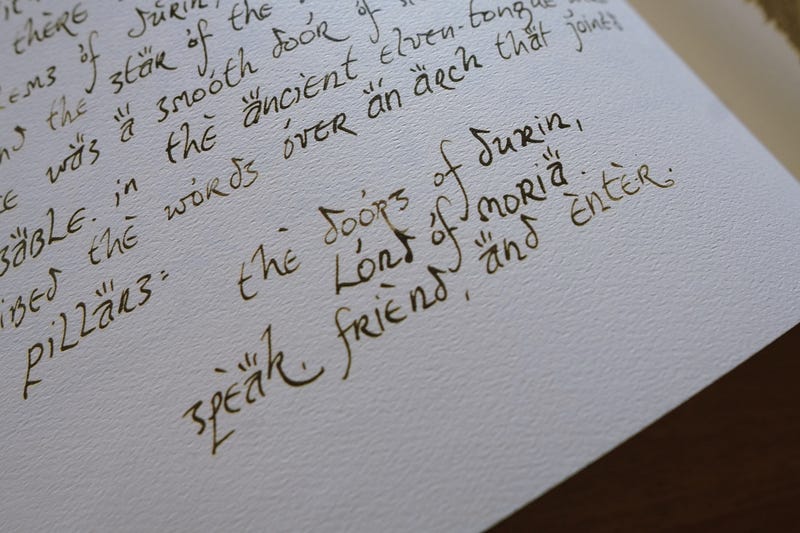 there
of durin,
the star of the
was a smooth door of
in the ancient elven-tongue
the words over an arch that joined
pillars:
the doors of durin,
Lord of moria.
speak, friend, and enter.